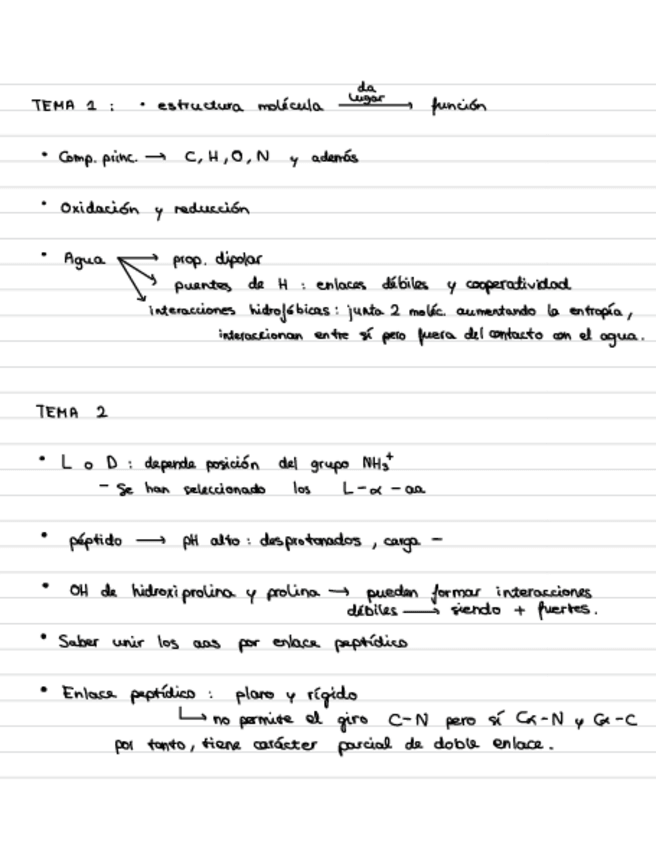 TEMA 1 : · estructura molécula da lugar → función
· Comp. princ. → C, H, O, N y además
· Oxidación y reducción
· Agua → prop. dipolar
→ puentes de H : enlaces débiles y cooperatividad
→ interacciones hidrofóbicas : junta 2 moléc. aumentando la entropía,
interaccionan entre sí pero fuera del contacto con el agua.
TEMA 2
· L o D : depende posición del grupo NH₃⁺
- Se han seleccionado los L-α-aa
· péptido → pH alto : desprotonados, carga -
· OH de hidroxiprolina y prolina → pueden formar interacciones
débiles → siendo + fuertes.
· Saber unir los aas por enlace peptídico
· Enlace peptídico : plano y rígido
↳ no permite el giro C-N pero sí Cα-N y Cα-C
por tanto, tiene carácter parcial de doble enlace.